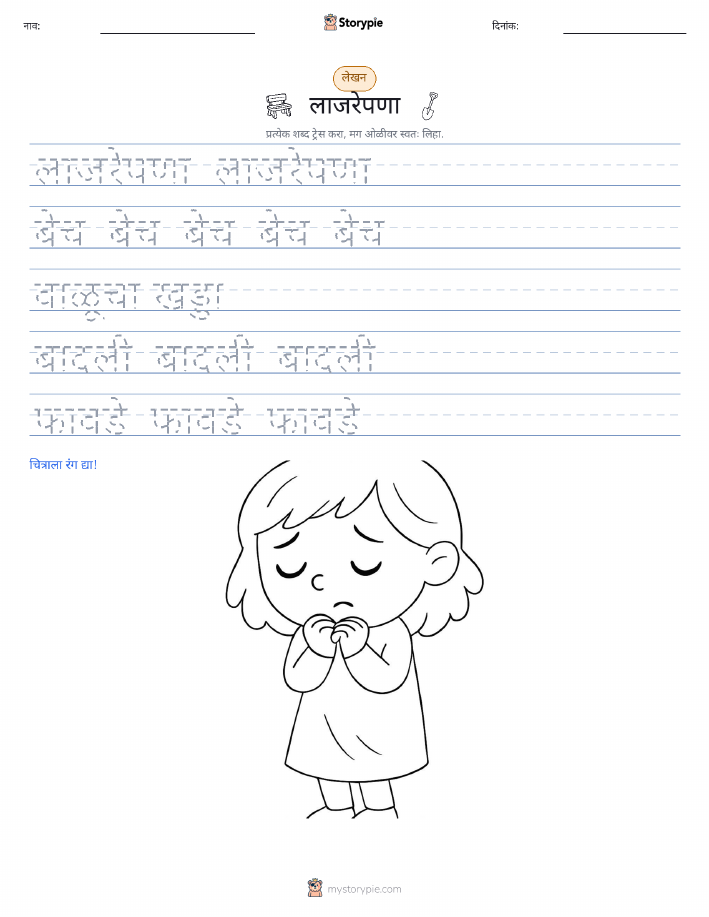 नाव:
Storypie
दिनांक:
लेखन
लाजरेपणा
प्रत्येक शब्द ट्रेस करा, मग ओळीवर स्वतः लिहा.
लाजरेपणा लाजरेपणा
बेंच बेंच बेंच बेंच बेंच
वाळूचा खड्डा
बादली बादली बादली
फावडे फावडे फावडे
चित्राला रंग द्या!
mystorypie.com